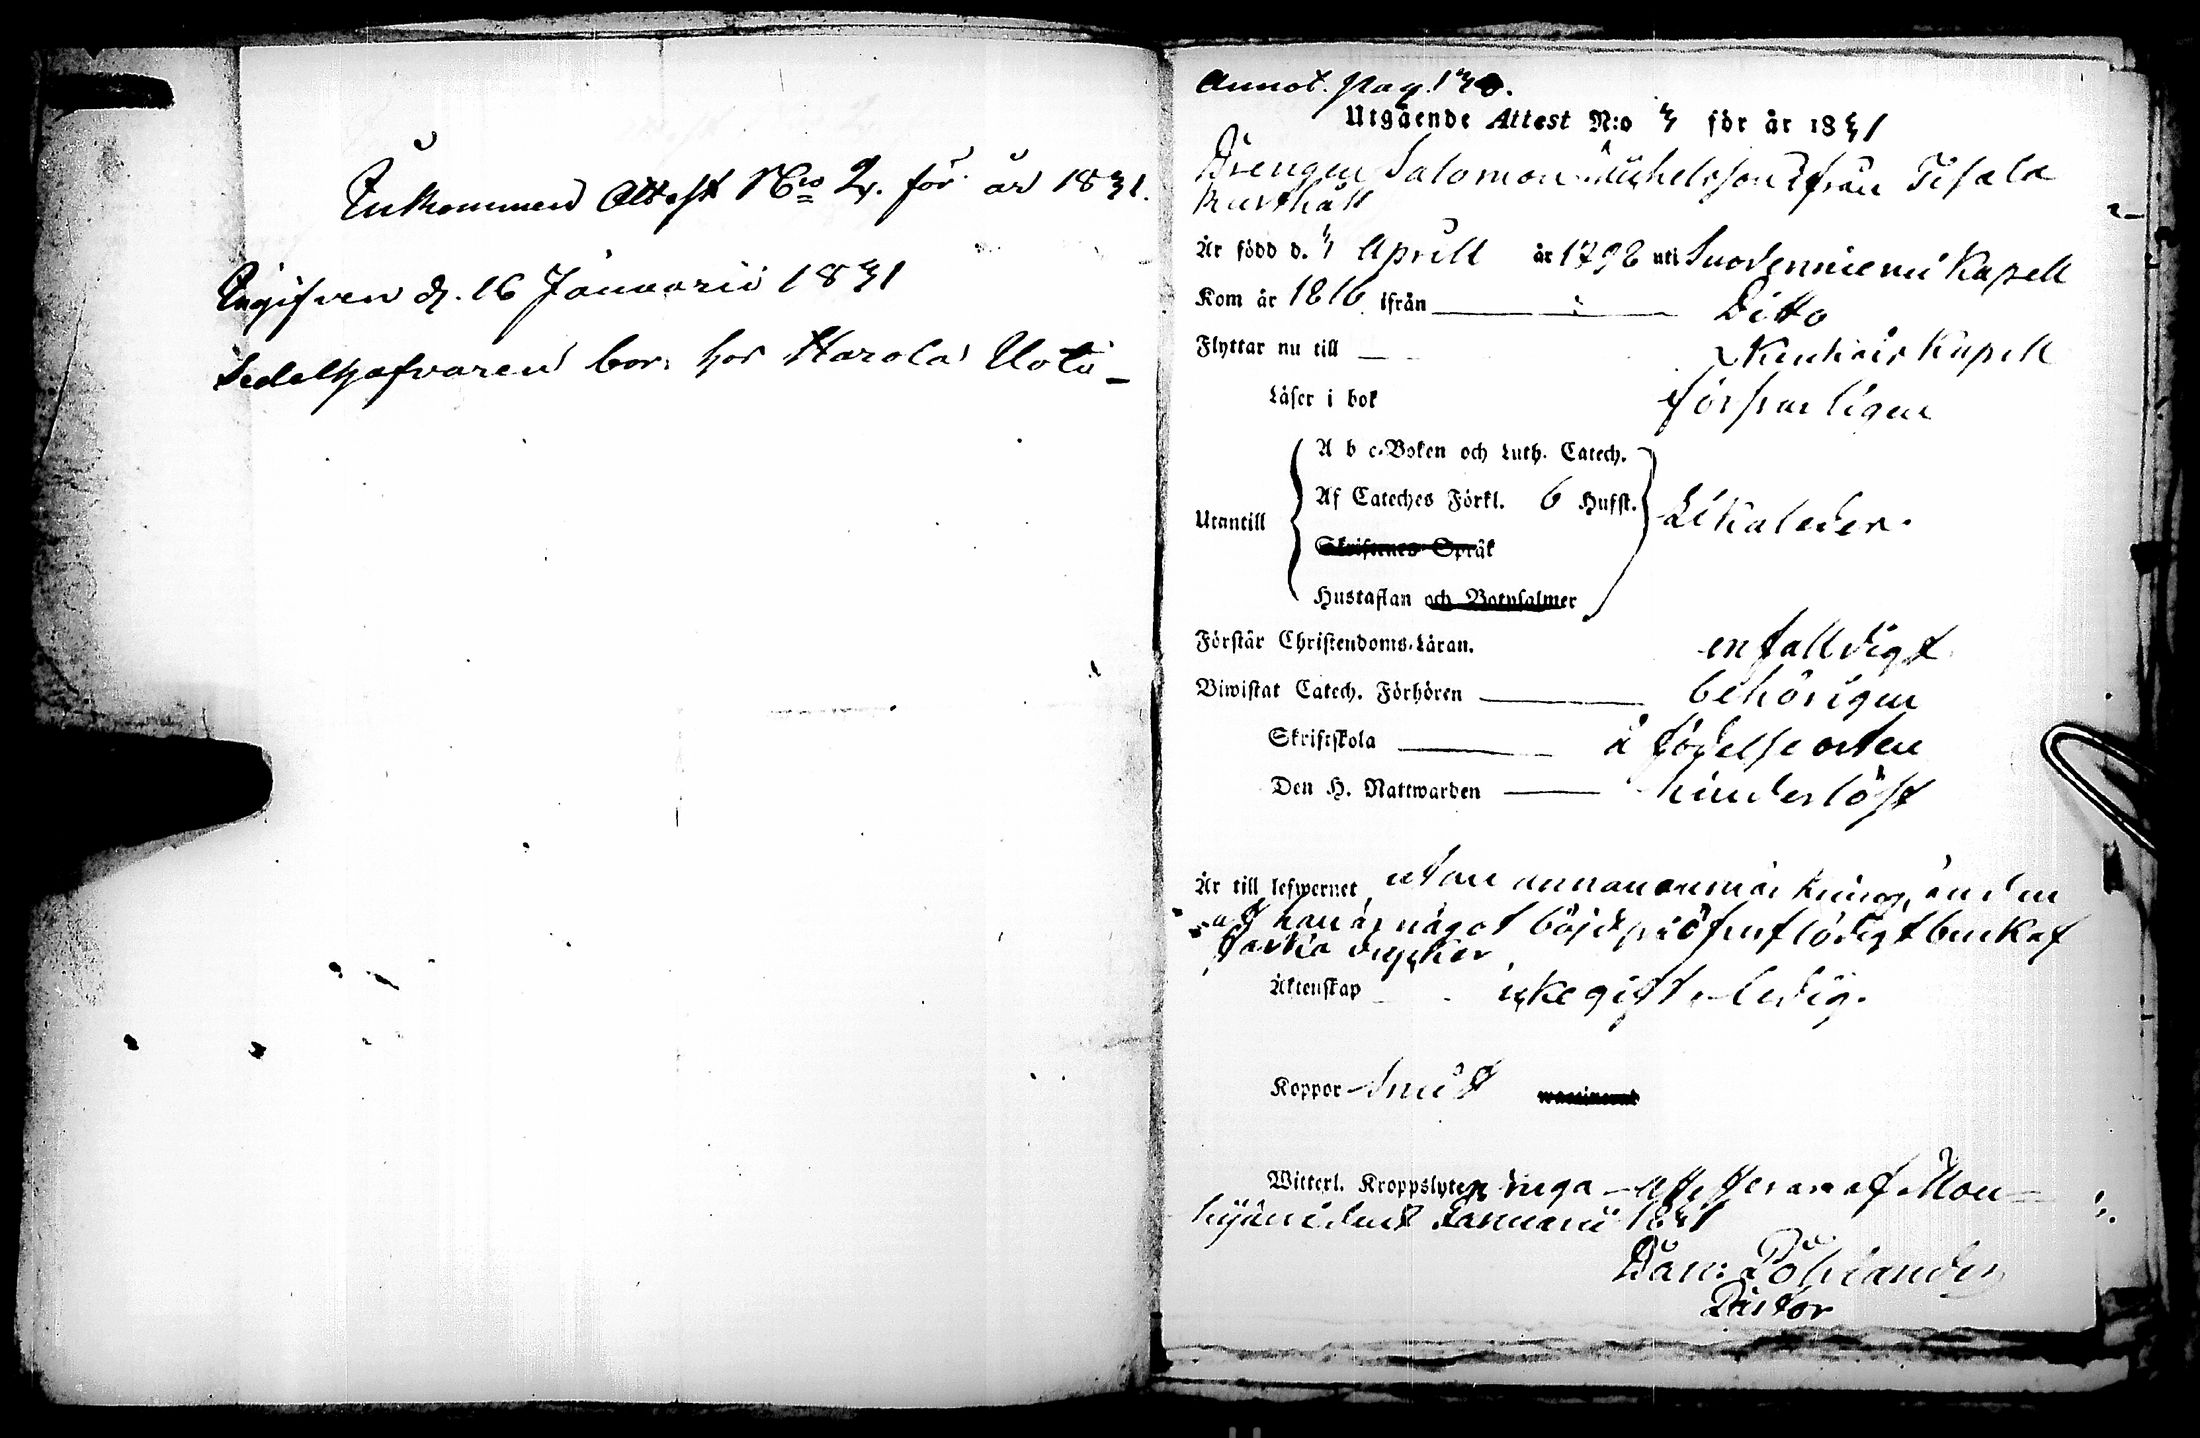 Inkommen Attest N:o 2. för år 1831.
Ingifven d. 16 Januarii 1831
Sedelhafvaren bor hos Harola Uoti
Annot. pag. 130.
Utgående Attest N:o 3 för år 1831
Drengen Salomon Michelsson ifrån Tisala
Rusthåll
Är född d. 3 Aprill år 1798 uti Suodenniemi Kapell
Kom år 1816 ifrån Ditto
Flyttar nu till Kapell
Läser i bok försvarligen
A b c-Boken och Luth. Catech.
Af Cateches Förkl. 6 Hufst.
Utantill Likaledes.
Skriftenes Språk
Hustaflan och Botpsalmer
Förstår Christendoms-Läran. enfalldigt
Biwistat Catech. Förhören behörigen
Skriftskola å födelseorten
Den H. Nattwarden hinderlöst
Är till lefwernet utan annan anmärkning, än den
att han är något böjd på öfverflödigt bruk af
starka drycker
Äktenskap icke gift, ledig.
Koppor haft waccinerad
Witterl. Kroppslyten inga attesterar af Mou-
hijärvi den 8 Januarii 1831
Dan: Pöhlander
Pastor